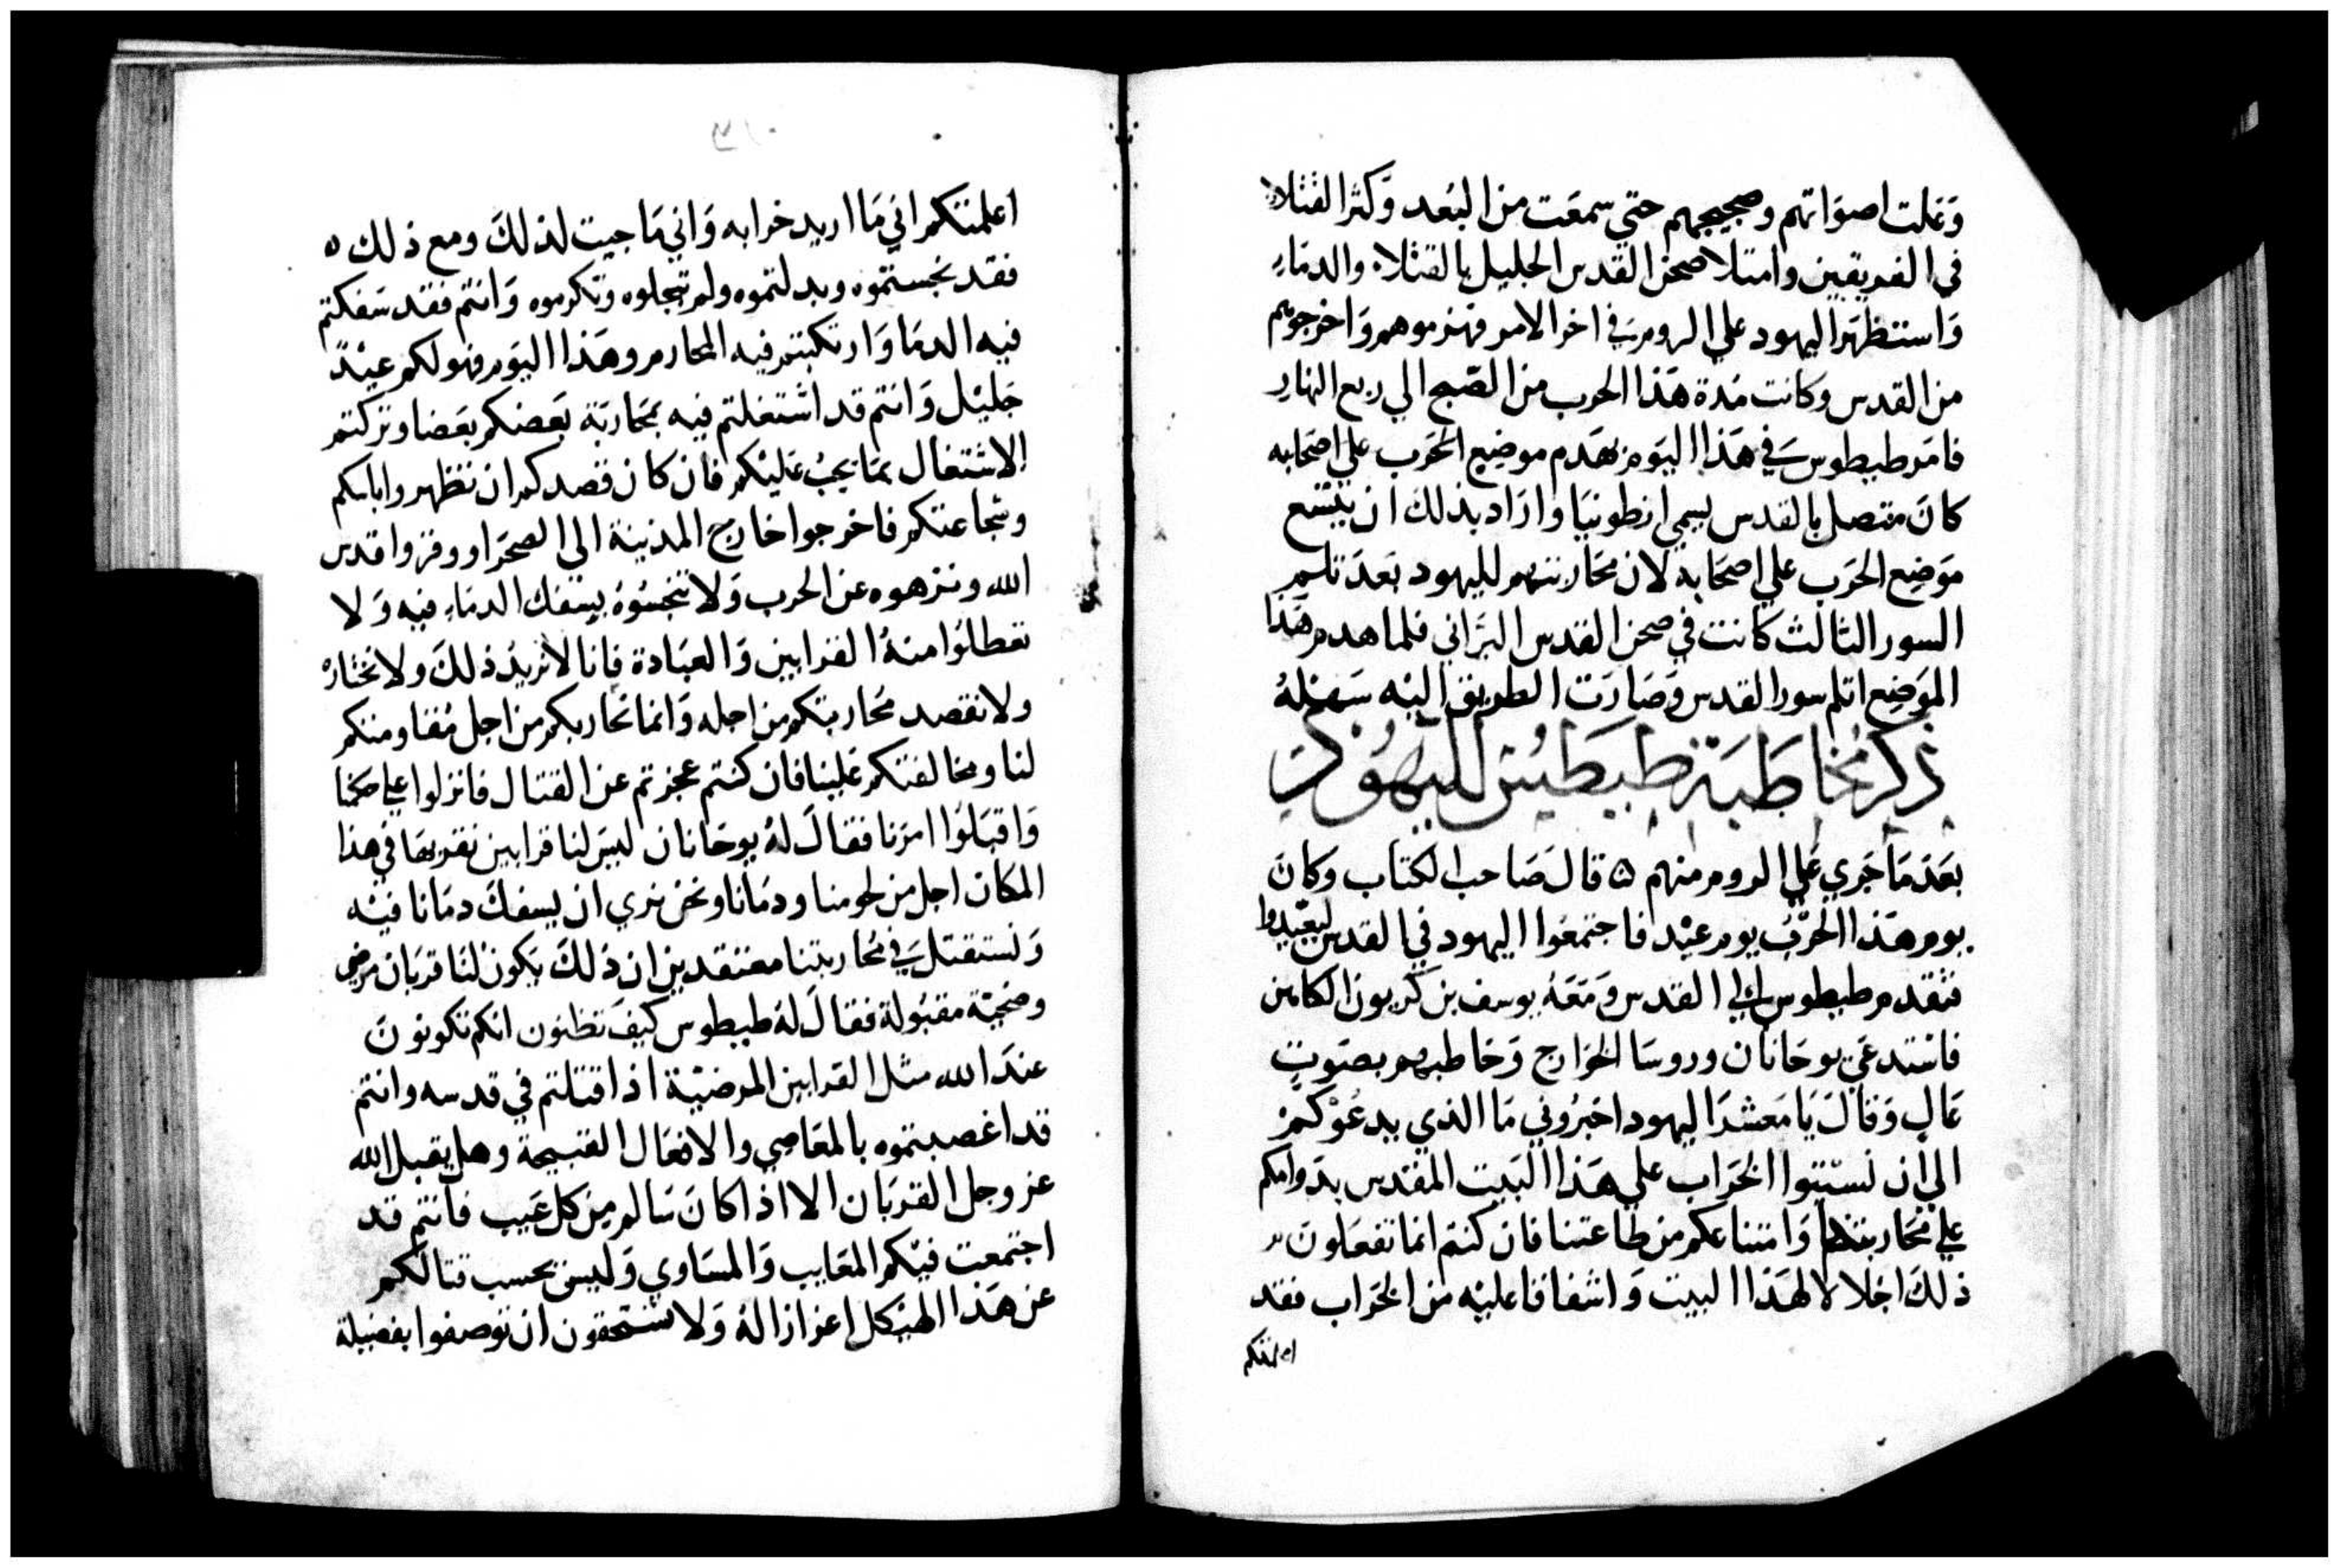 وَعَلت اصوَاتهم وضجيجهم حتي سمعَت من البُعد وَكثر القتلا
في الفريقين وامتلا صحن القدس الجليل بالقتلا والدمَاءِ
وَاستظهَر اليهود علي الروم في اخر الامر فهزموهم وَاخرجوهم
من القدس وكانت مُدة هَذا الحرب من الصّبح الي ربع النهار
فامَر طيطوس في هَذا اليَوم بهَدم موضِع الحَرب علي اصحَابه
كانَ متصل بالقدس يسمي انطونيَا وارَاد بذلك ان يتسع
مَوَضِع الحَرَب علي اصحَابه لان مُحَاربتهم لليهود بَعدَ ثلم
السور الثالث كانت في صحن القدس البَرّاني فلما هدم هَذا
الموَضِع اثلم سور القدس وَصَارَت الطريق اليْه سَهْلهُ
ذكر مُخاطَبَة طيطَوُس لليَهُود
بعَد مَا جَري عَلي الروم منهم ۵ قالَ صَاحب الكتاب وكانَ
يوم هَذا الحَرْبُ يوم عيْد فاجتمعُوا اليهود في القدس ليعَيّدوا
فتقدم طيطوس الي القدس وَمَعَهُ يوسف بن كَريون الكاهن
فاسْتدعَي يوحَانان وروسَا الخوَارج وَخاطبهم بصَوتٍ
عَالٍ وَقالَ يَا مَعشرَ اليهود اخبرُوني مَا الذي يدعُوْكمْ
الي ان تسبّتوا الخرَاب علي هَذا البَيت المقدس بدَوامكم
علي مُحَاربتنا وَامتناعكم من طاعتنا فان كنتم انما تفعَلونَ
ذلكَ اجْلالا لهَذا البيت وَاشفاقا عليْه من الخَرَاب فقد
اعلمتكم
اعلمتكم اني مَا اريد خرابه وَاني مَا جيت لذلكَ ومع ذلك ٥
فقد نجستمُوه وبدلتموه ولم تبجلوه وتكرموه وَانتم فقد سَفكتم
فيه الدمَا وَارتكبتم فيه المحارم وهَذا اليَوم فهو لكم عيْدً
جَليْل وَانتم قد اشتغلتم فيه بمحَاربَة بَعضكم بَعَضا وتركتم
الاشتغال بمَا يَجبُ عَليْكم فان كان قصدكم ان تظهروا باسكم
وشجاعتكم فاخرجوا خارج المدَينة الى الصحَرا ووقروا قدس
الله ونزهوه عن الحرب وَلا تنجسُوهُ بسفك الدمَاءِ فيه وَلا
تعطلوُا منهُ القرابين وَالعبَادة فانا لا نريدُ ذلكَ ولا نختارُ
ولا نقصد مُحاربتكم من اجله وَانما نحَاربكم من اجل مُقاومتكم
لنا ومخالفتكم عَلينا فان كنتم عجزتم عن القتال فانزلوا علي حكمنا
وَاقبَلوُا امرَنا فقالَ لهُ يوحَانان ليسَ لنا قرابين نقربهَا في هَذا
المكان اجل من لحومنا ودمَانا ونحن نري ان يسفكَ دمَانا فيْه
وَنستقتل في مُحاربتنا معتقدين ان ذلكَ يَكونْ لنا قربَان مرضِي
وضحيّة مقبُولة فقالَ لهُ طيطوس كيفَ تظنون انكم تكونونَ
عندَ الله مثل القرابين المرضيّة اذا قتلتم في قدسه وانتم
قد اغصبتموه بالمعَاصِي والافعَال القبيحة وهل يقبل الله
عز وجل القربَان الا اذا كانَ سَالم مِن كل عَيب فانتم قد
اجتمعت فيْكم المعَايب وَالمسَاوي وَليسَ بحسب قتالكم
عن هَذا الهَيْكل اعزازا لهُ وَلا تستحقون ان توصفوا بفضيلة